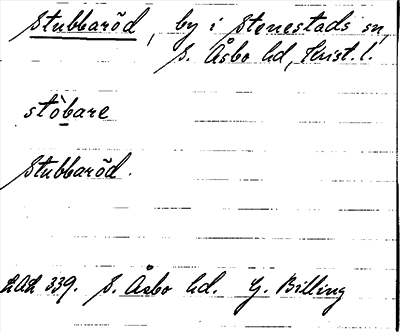 Stubbaröd, by i Stenestads sn,
S. Åsbo hd, Krist. l.
stòbare
Stubbaröd.
LAL 339. S. Åsbo hd. G. Billing